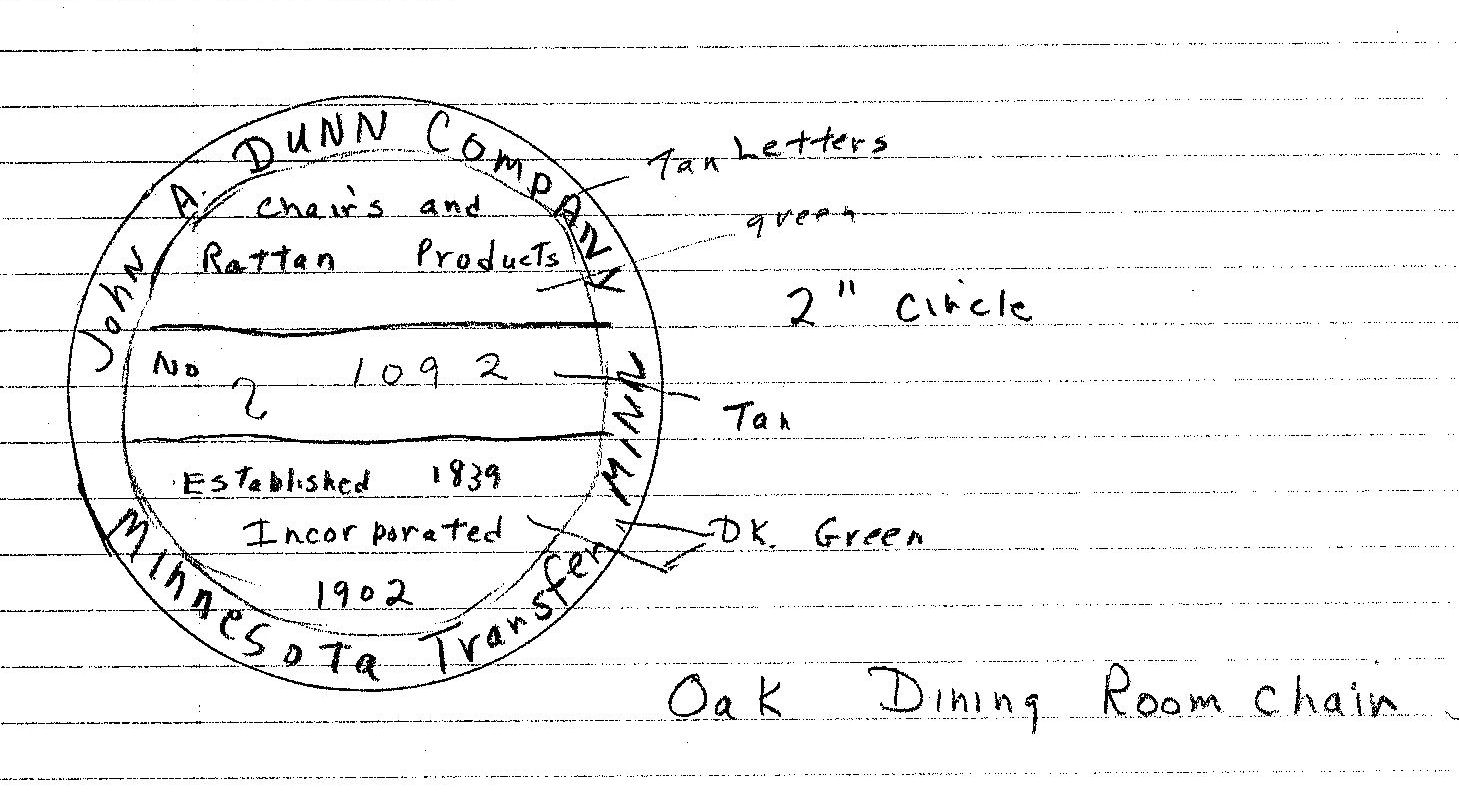 John A. DUNN CompANY
Chairs and
Rattan Products
No 2 1092
Established 1839
Incorporated
1902
Minnesota Transfer MINN
Tan Letters
green
2" circle
Tan
DK. Green
Oak Dining Room chair